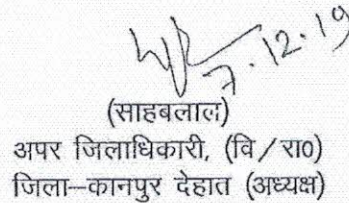 7.12.19
(साहबलाल)
अपर जिलाधिकारी, (वि/रा0)
जिला–कानपुर देहात (अध्यक्ष)